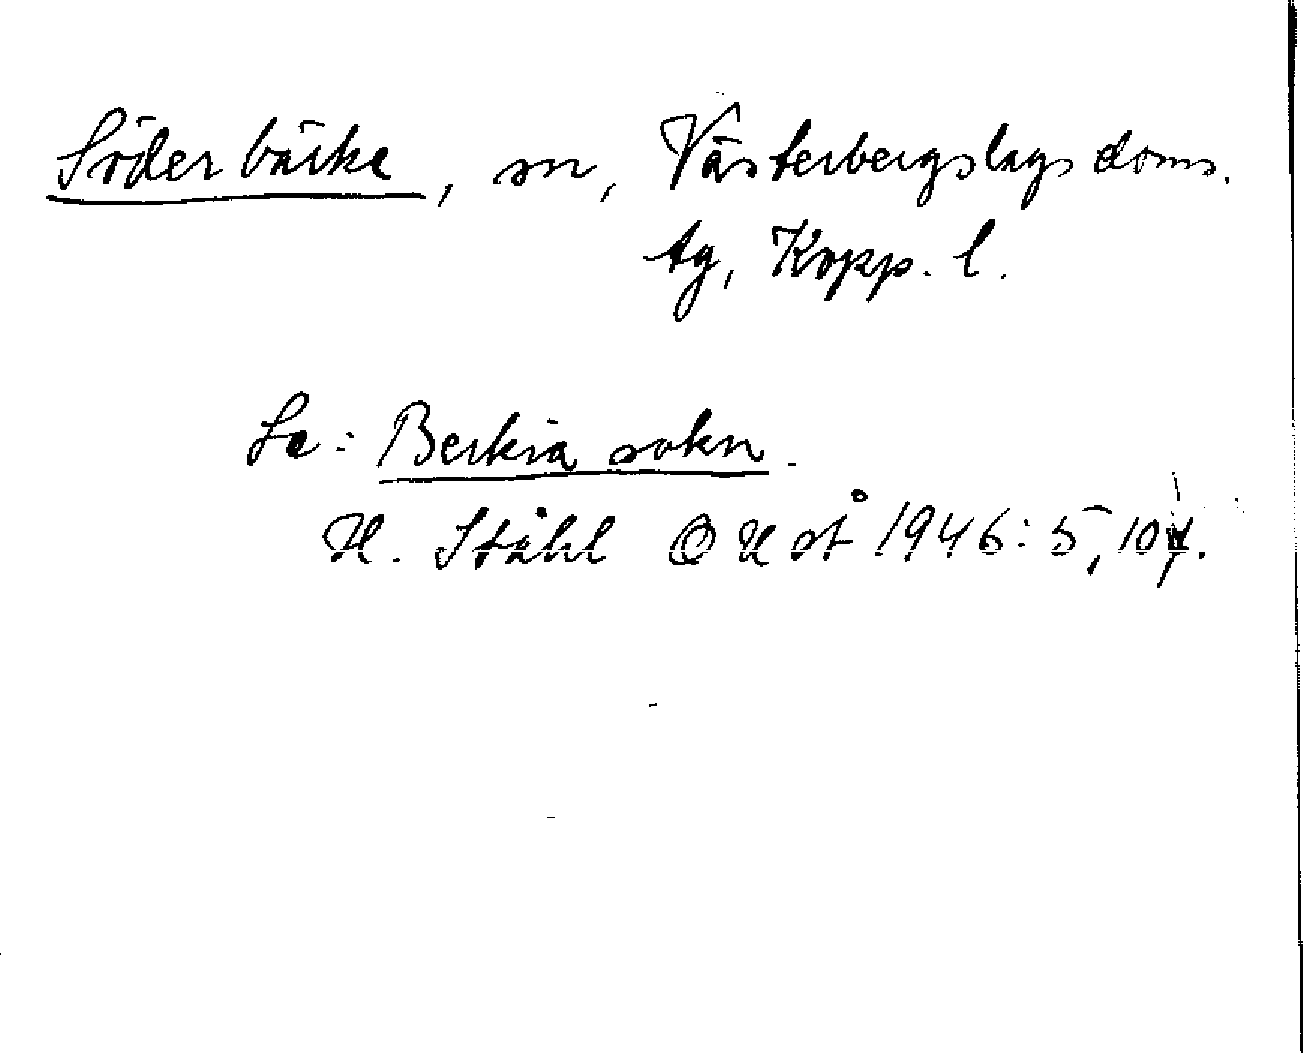 Söderbärke, sn, Västerbergslags doms.
tg, Kopp. l.
Se: Berkia sokn.
H. Ståhl OUÅ 1946: 5,